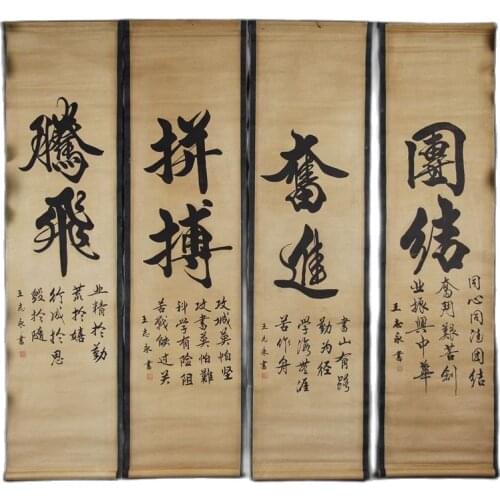 團結
同心同德团结
奮鬥艱苦創
业振興中華
王志永書
奮進
書山有路
勤为径
学海無涯
苦作舟
王志永書
拼搏
攻城莫怕坚
攻書莫怕難
科学有险阻
苦戰能过关
王志永書
騰飛
业精於勤
荒於嬉
行成於思
毁於随
王志永書